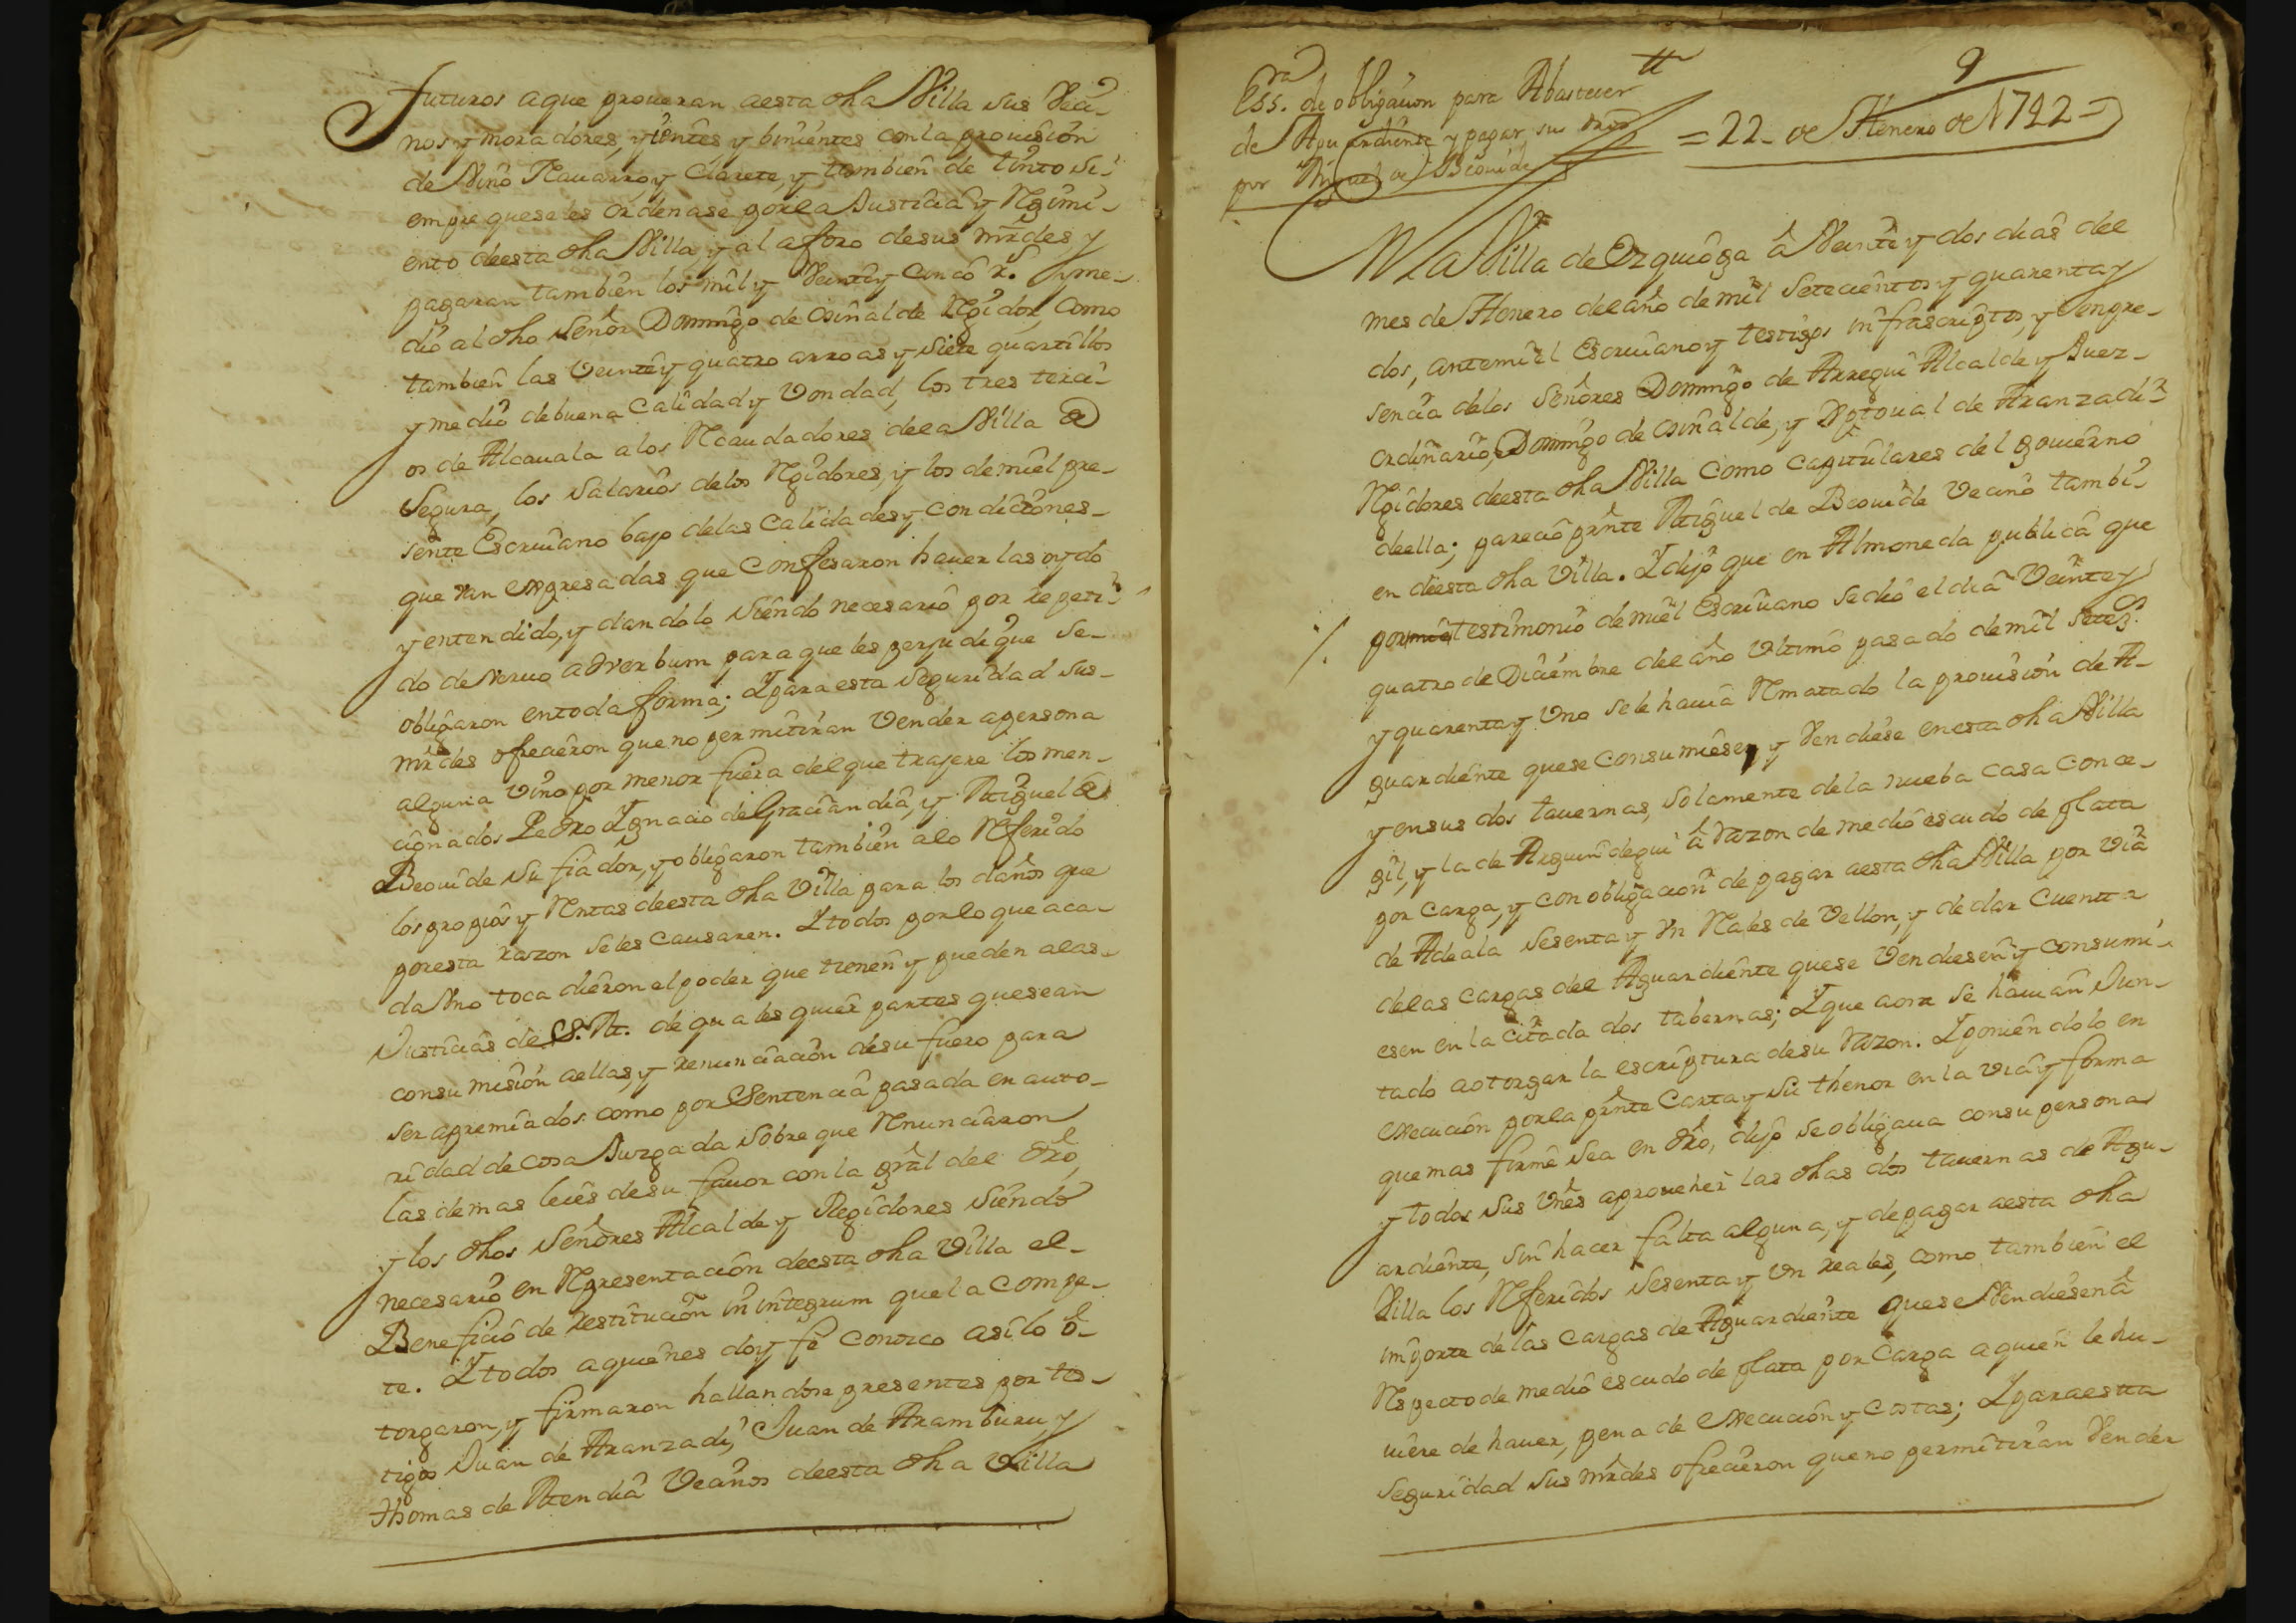 futuros a que proueran aesta dha Villa sus Veci-
nos y moradores, yentes y binientes con la prouision
de Vino Nauarro y Clarete, y tambien de tinto si-
empre que se les ordenase por la Justicia y Regimi-
ento deesta dha Villa y al aforo de sus mrdes y
pagaran tambien los mil y Veinte y cinco rs. y me-
dio al dho Señor Domingo de Osinalde Regidor, como
tambien las Veinte y quatro arroas y siete quartillos
y medio de buena Calidad y Vondad, los tres terci-
os de Alcauala a los Recaudadores de la Villa de
Segura, los Salarios de los Regidores, y los de mi el pre-
sente Escriuano bajo de las Calidades y condiciones
que van expresadas que Confesaron hauerlas oydo
y entendido, y dandolo siendo necesario por repeti-
do de Veruo adverbum para que les perjudique se
obligaron en toda forma; Y para esta seguridad sus
mrdes ofrecieron que no permitiran Vender a persona
alguna Vino por menor fuera del que trajere los men-
cionados Pedro Ygnacio de Graciandia, y Miguel de
Beouide su fiador, y obligaron tambien alo Referido
los propios y Rentas deesta dha Villa para los daños que
por esta razon se les causaren. Y todos por lo que aca-
da Vno toca dieron el poder que tienen y pueden alas
Justicias de S. M. de quales quier partes que sean
con sumision aellas, y renunciacion de su fuero para
ser apremiados como por Sentencia pasada en auto-
ridad de cosa Juzgada sobre que Renunciaron
las demas leies de su fauor con la gral del dro,
y los dhos Señores Alcalde y Regidores siendo
necesario en Representacion deesta dha Villa el
Beneficio de restitucion in integrum que la compe-
te. Y todos a quienes doy fe conozco asi lo o-
torgaron, y firmaron hallandose presentes por tes-
tigos Juan de Aranzadi, Juan de Aramburu, y
Thomas de Mendia Vecinos deesta dha Villa
Essra. de obligacion para Abastecer
de Aguardiente y pagar su
por Miguel de Beouide
9
= 22 de Henero de 1742 =
En la Villa de Ezquioga â Veinte y dos dias del
mes de Henero del año de mil setecientos y quarenta y
dos, ante mi el Escriuano y testigos infrascriptos, y en pre-
sencia de los Señores Domingo de Arregui Alcalde y Juez
ordinario, Domingo de Osinalde, y Xptoual de Aranzadi
Regidores deesta dha Villa como capitulares del gouierno
deella; parecio prnte Miguel de Beouide Vecino tambi-
en deesta dha Villa. Y dijo que en Almoneda publica que
por testimonio de mi el Escriuano se dio el dia Veinte y
quatro de Diciembre del año Vltimo pasado de mil setecs.
y quarenta y Vno se le hauia Rematado la prouision de A-
guardiente que se consumiese, y Vendiese en esta dha Villa
y en sus dos tauernas, solamente de la nueba casa conce-
gil, y la de Arguindegui â razon de medio escudo de plata
por carga, y con obligacion de pagar aesta dha Villa por Via
de Adeala sesenta y Vn Reales de Vellon, y de dar Cuenta
de las cargas del Aguardiente que se Vendiesen y consumi-
esen en la citada dos tabernas; Y que aora se hauian Jun-
tado aotorgar la escriptura de su razon. Y poniendolo en
execucion por la prnte Carta y su thenor en la via y forma
que mas firme sea en dro, dijo se obligaua con su persona
y todos sus Vnes aproueher las dhas dos tauernas de Agu-
ardiente, sin hacer falta alguna, y de pagar aesta dha
Villa los Referidos sesenta y vn reales, como tambien el
importe de las cargas de Aguardiente que se Vendiesen â
Respecto de medio escudo de plata por Carga a quien le hu-
uiere de hauer, pena de execucion y Costas; Y para esta
seguridad sus mrdes ofrecieron que no permitiran Vender